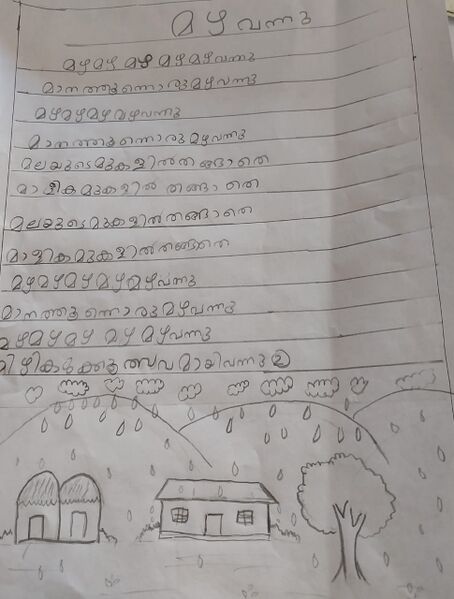 മഴ വന്നു
മഴമഴ മഴ മഴമഴവന്നു
മാനത്തുന്നൊരുമഴവന്നു
മഴമഴമഴ മഴവന്നു
മാനത്തുന്നൊരു മഴവന്നു
മലയുടെമുകളിൽത ങ്ങാതെ
മാളികമുകളിൽ തങ്ങാതെ
മലയുടെമുകളിൽതങ്ങാതെ
മാളികമുകളിൽതങ്ങാതെ
മഴമഴമഴ മഴമഴവന്നു
മാനത്തുന്നൊരു മഴവന്നു
മഴമഴ മഴ മഴ മഴവന്നു
മിഴികൾക്കുത്സവമായിവന്നു ②